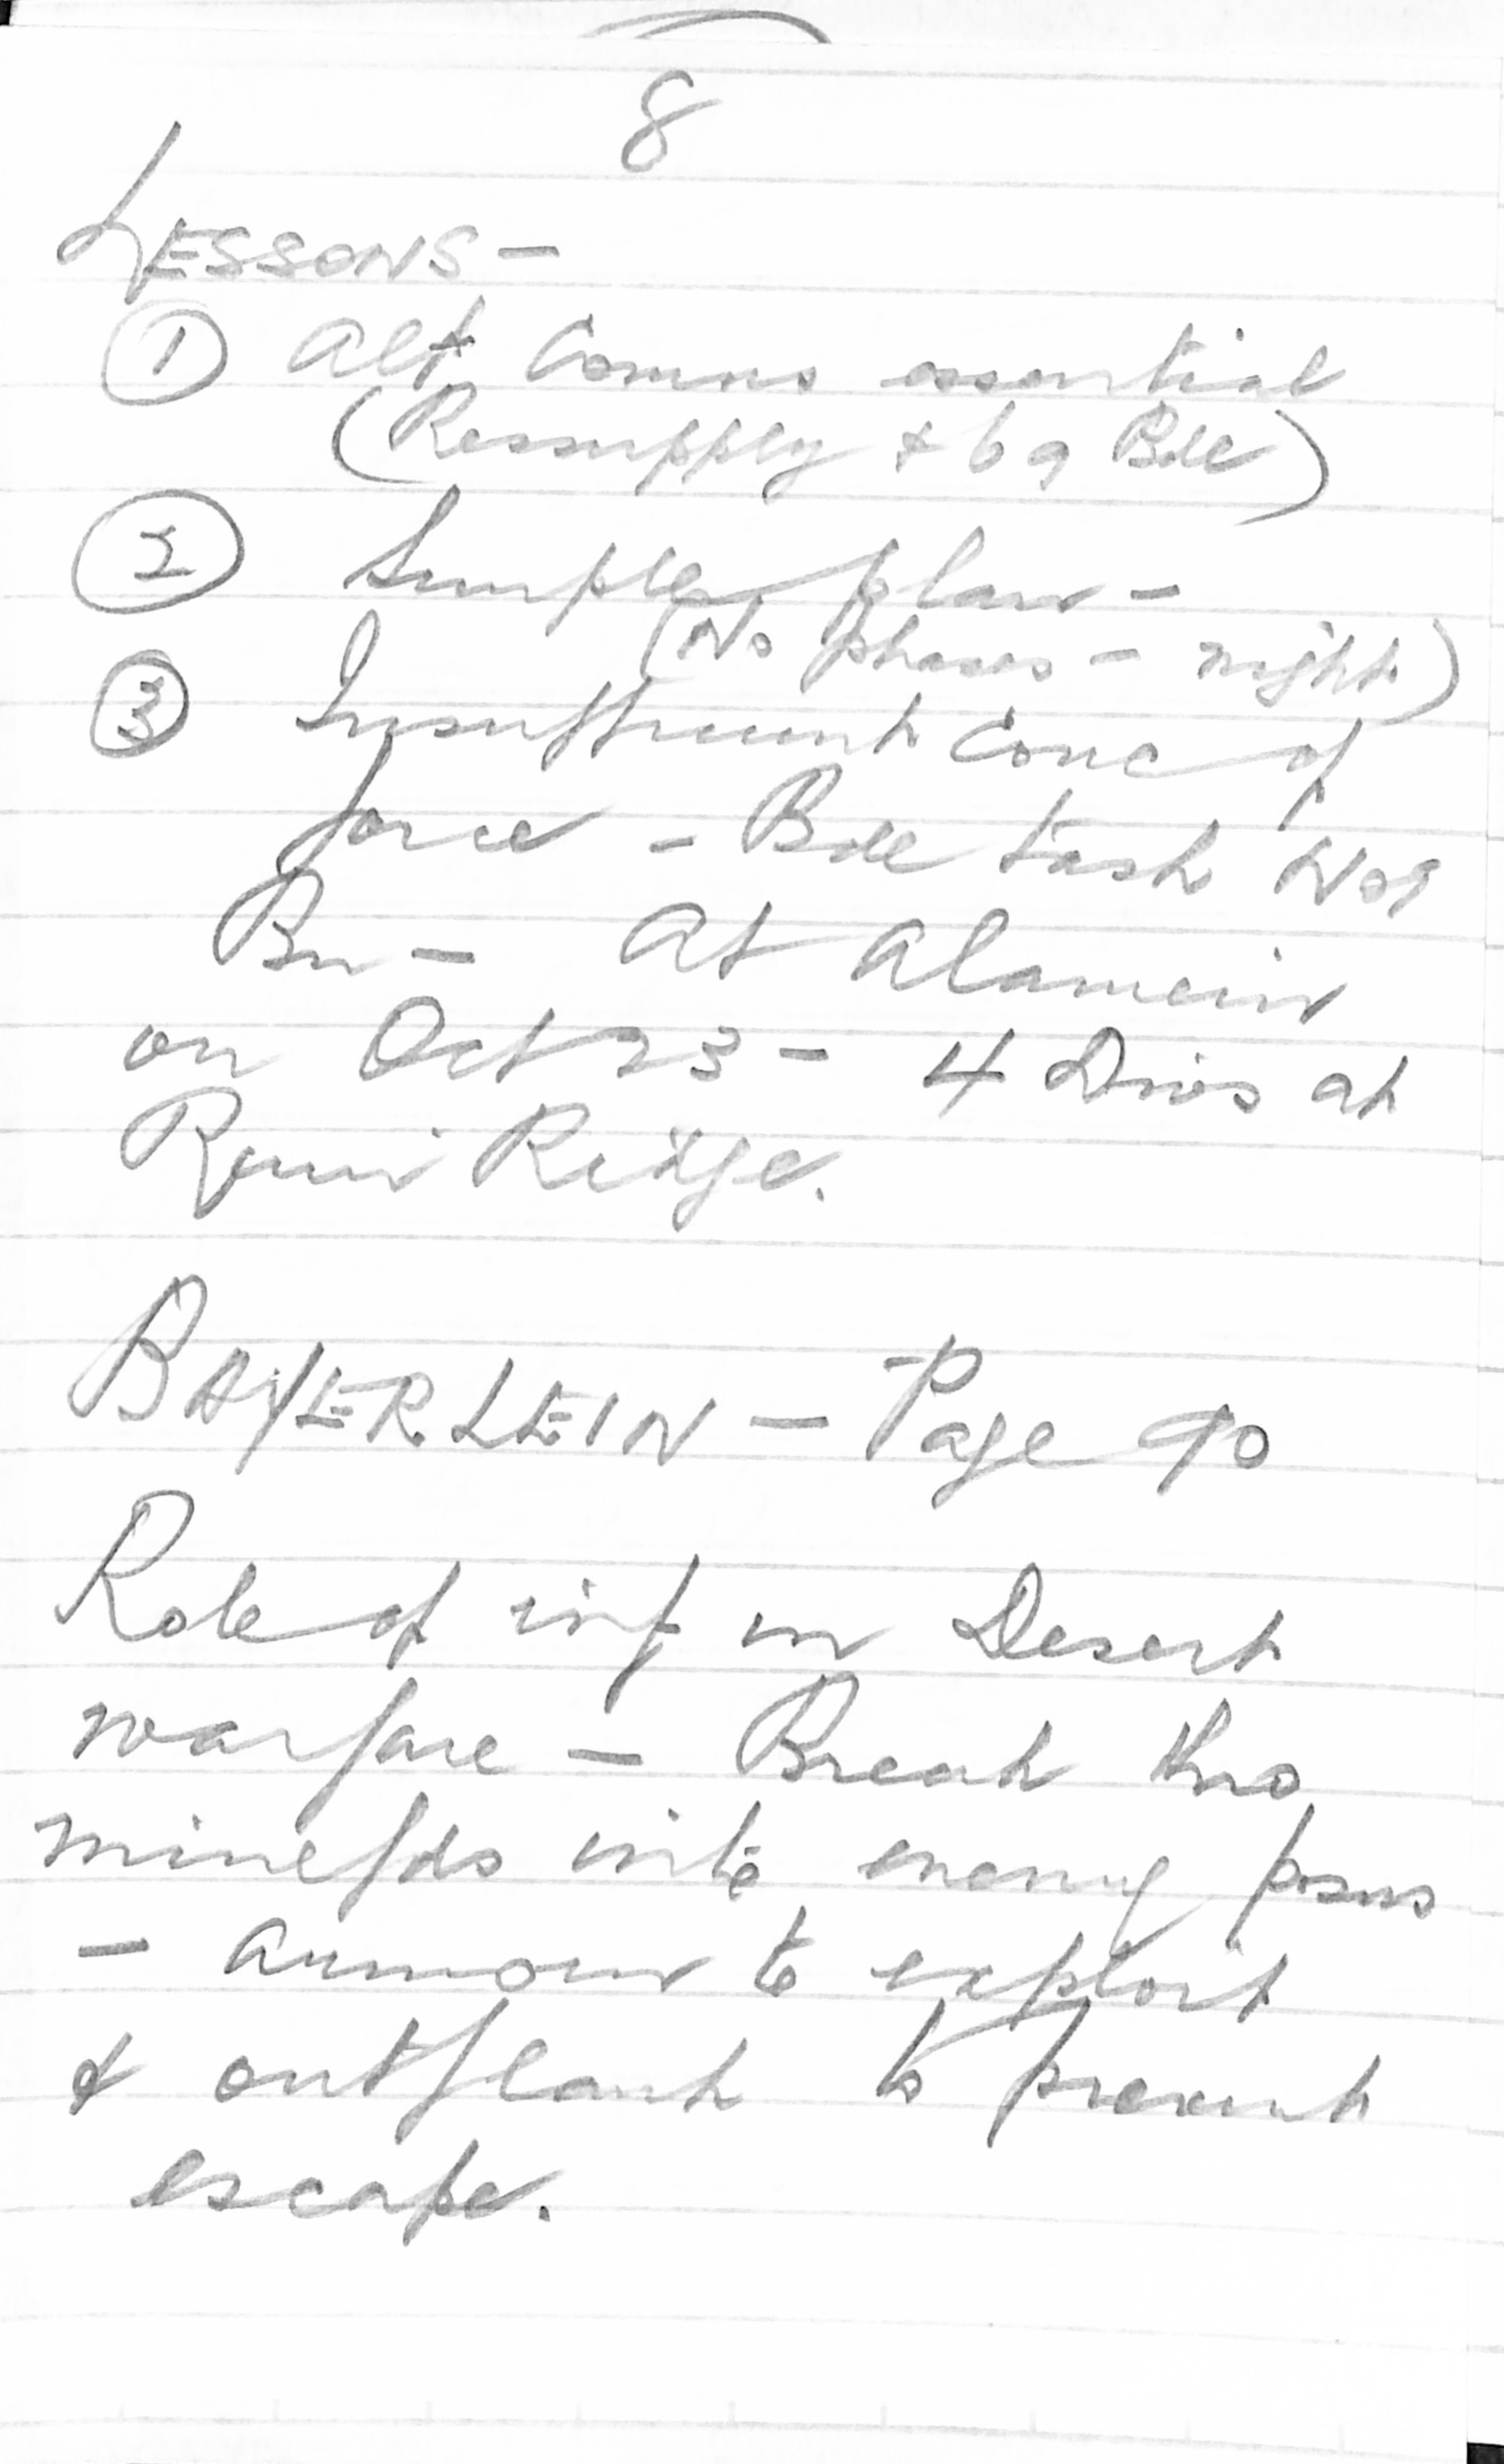 8
LESSONS -
① Alt Comns essential
(Resupply + 69 Bde)
② Simple plan -
(No phases - night)
③ Insufficient conc of
force - Bde task not
Bn - At Alamein
on Oct 23 - 4 Divs at
Ridge.
BAYERLEIN - Page 90
Role of inf in Desert
warfare - Break thro
minefds into enemy posns
- armour to exploit
& outflank to prevent
escape.